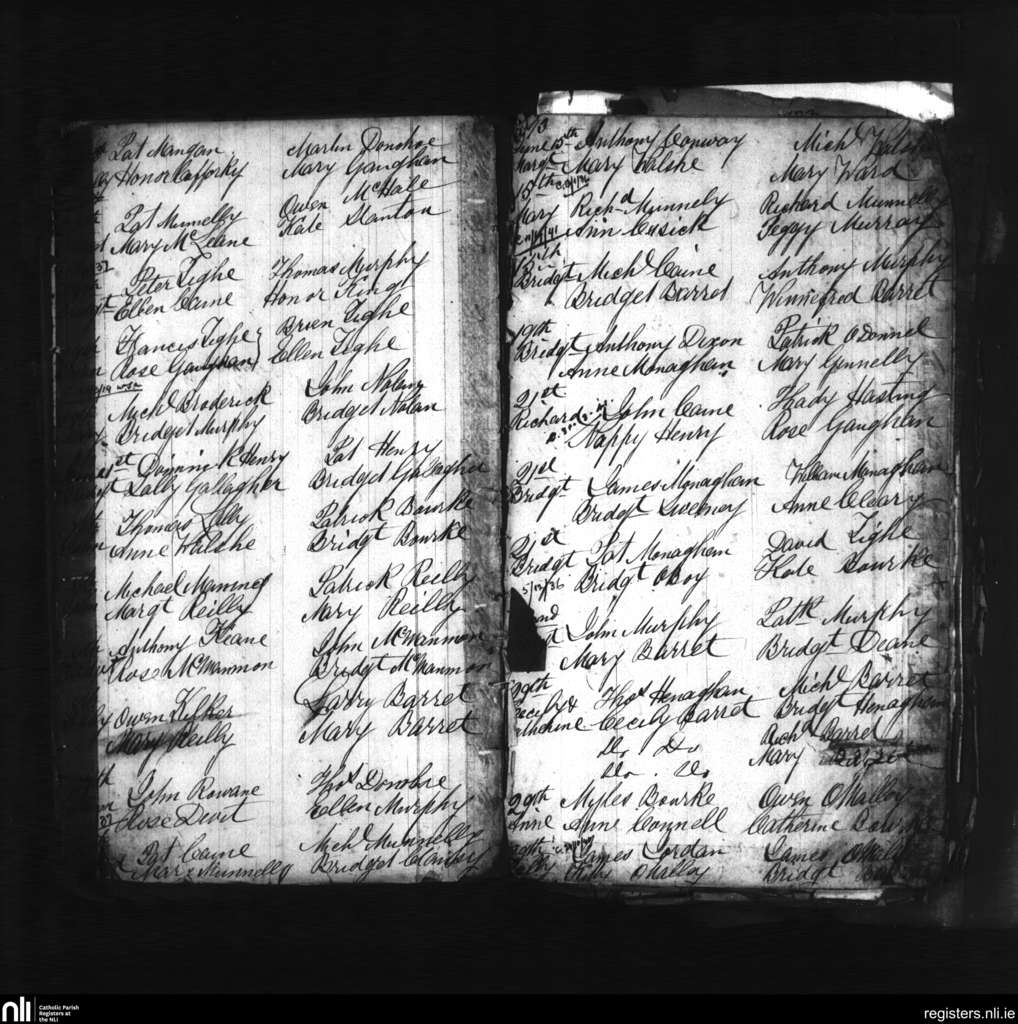 Pat Mangan Martin Donohoe
Honor Cafforky Mary Gaughan
Pat Munnelly Owen McHale
Mary McLene Kate Stanton
Peter Tighe Thomas Murphy
Ellen Caine Honor King
Francis Tighe Brien Tighe
Rose Gaughan Ellen Tighe
Michl Broderick John Nolan
Bridget Murphy Bridget Nolan
Dominick Henry Pat Henry
Sally Gallagher Bridget Gallagher
Thomas Lally Patrick Bourke
Anne Walshe Bridgt Bourke
Michael Patrick Reilly
Margt Reilly Mary Reilly
Anthony Keane John McManmon
Rose McManmon Bridgt McManmon
Owen Kilker Larry Barret
Mary Reilly Mary Barret
John Rowane Thos Donohoe
Rose Devit Ellen Murphy
Pat Caine Michl Munnelly
Mary Munnelly Bridget
June 15th Anthony Conway Michl
Margt Mary Walshe Mary Ward
15th
Mary Richd Munnely Richard Munnelly
Ann Cusick Peggy Murray
Bridgt Michl Caine Anthony Murphy
Bridget Barret Winnefred Barret
19th
Bridgt Anthony Dixon Patrick ODonnel
Anne Monaghan Mary Gunnelly
21st
Richard John Caine Thady Hasting
Nappy Henry Rose Gaughan
21st
Bridgt James Monaghan William Monaghan
Bridgt Sweeney Anne Cleary
21st
Bridgt Pat Monaghan David Tighe
5/12/36 Bridgt OBoy Kate Bourke
John Murphy Patk Murphy
Mary Barret Bridgt Deane
29th
Cecily & Thos Henaghan Michl Barret
Catherine Cecily Barret Bridgt Henaghan
Do Do Richd Barret
Do Do Mary
29th Myles Bourke Owen OMalley
Anne Anne Connell Catherine Bourke
James Jordan James OMalley
OMalley Bridgt
nli Catholic Parish
Registers at
the NLI
registers.nli.ie